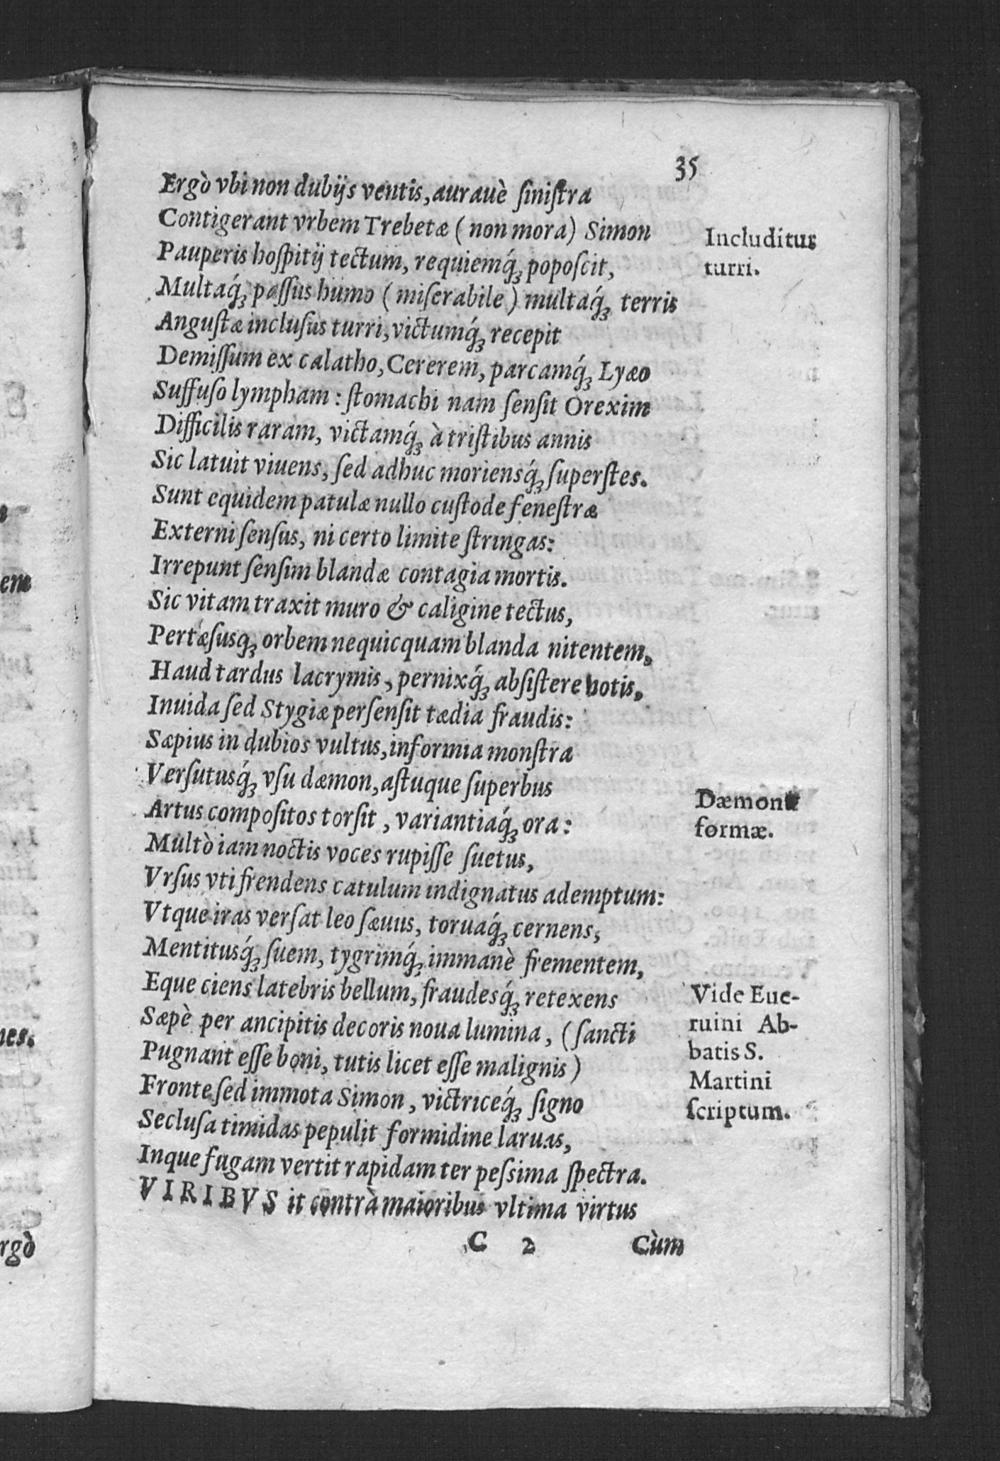 35
Ergò vbi non dubijs ventis, aurauè ſiniſtra
Contigerant vrbem Trebetæ ( non mora) Simon
Pauperis hoſpitij tectum, requiemq́ꝫ popoſcit,
Multaq́ꝫ paſſus humo ( miſerabile ) multaq́ꝫ terris
Anguſtæ incluſus turri, victumq́ꝫ recepit
Demiſſum ex calatho, Cererem, parcamq́ꝫ Lyæo
Suffuſo lympham : ſtomachi nam ſenſit Orexim
Difficilis raram, victamq́ꝫ à triſtibus annis
Sic latuit viuens, ſed adhuc moriensq́ꝫ ſuperſtes.
Sunt equidem patulæ nullo cuſtode feneſtræ
Externi ſenſus, ni certo limite ſtringas:
Irrepunt ſenſim blandæ contagia mortis.
Sic vitam traxit muro & caligine tectus,
Pertæſusqꝫ orbem nequicquam blanda nitentem,
Haud tardus lacrymis, pernixq́ꝫ abſiſtere votis,
Inuida ſed Stygiæ perſenſit tædia fraudis:
Sæpius in dubios vultus, informia monſtra
Verſutusq́ꝫ vſu dæmon, aſtuque ſuperbus
Artus compoſitos torſit, variantiaq́ꝫ ora:
Multò iam noctis voces rupiſſe ſuetus,
Vrſus vti frendens catulum indignatus ademptum:
Vtque iras verſat leo ſæuus, toruaq́ꝫ cernens,
Mentitusq́ꝫ ſuem, tygrimq́ꝫ immanè frementem,
Eque ciens latebris bellum, fraudesq́ꝫ retexens
Sæpè per ancipitis decoris noua lumina, (ſancti
Pugnant eſſe boni, tutis licet eſſe malignis )
Fronte ſed immota Simon, victriceq́ꝫ ſigno
Secluſa timidas pepulit formidine laruas,
Inque fugam vertit rapidam ter peſsima ſpectra.
VIRIBVS it contrà maioribus vltima virtus
C 2 Cùm
Includitur
turri.
Dæmonis
formæ.
Vide Eue-
ruini Ab-
batis S.
Martini
ſcriptum.
rgò